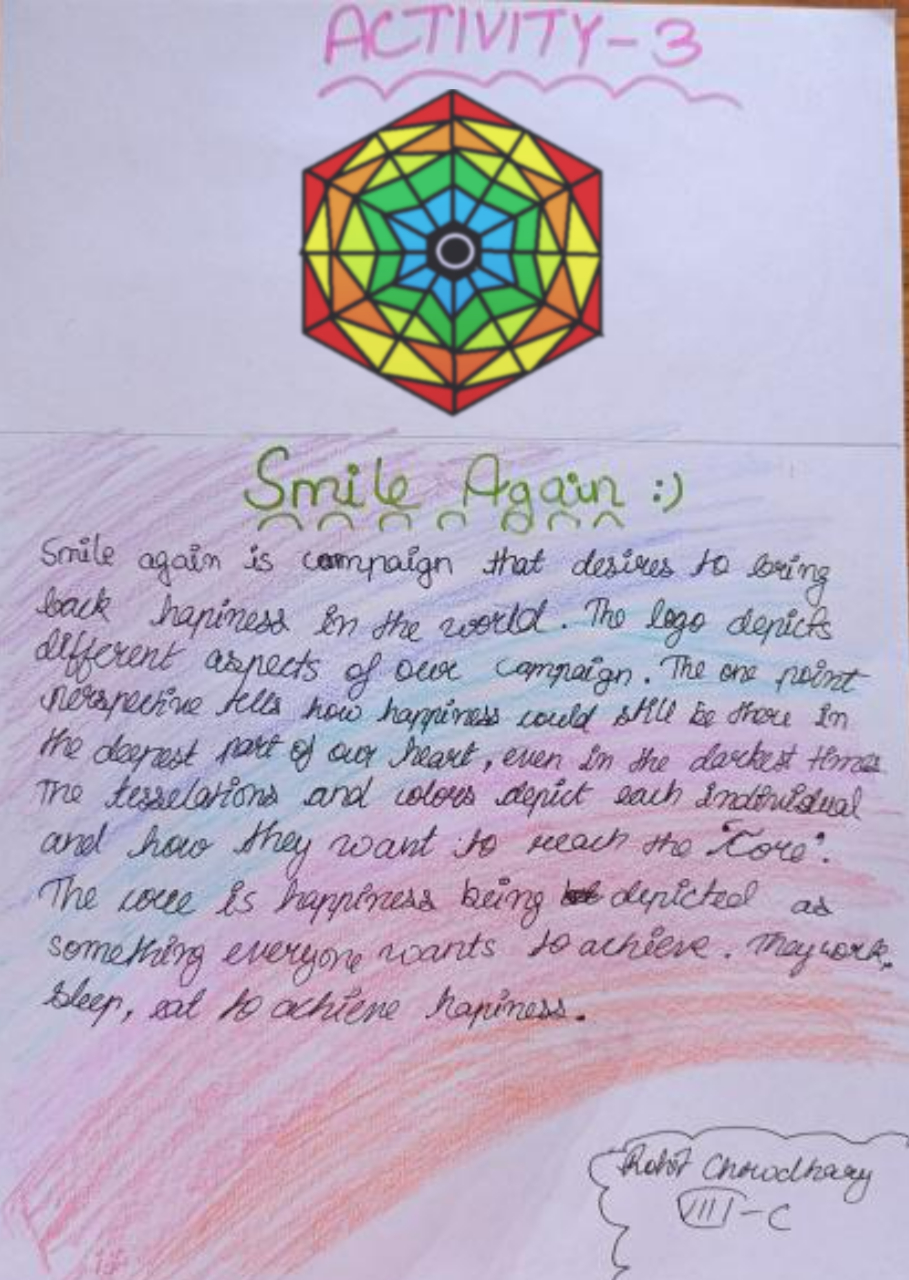 ACTIVITY-3
Smile Again :)
Smile again is campaign that desires to bring
back hapiness in the world. The logo depicts
different aspects of our campaign. The one point
perspective tells how happiness could still be there in
the deepest part of our heart, even in the darkest times
The tesselations and colors depict each individual
and how they want to reach the "Core".
The core is happiness being depicted as
something everyone wants to achieve. They work,
sleep, eat to achieve hapiness.
Rohit Chowdhary
VIII-C